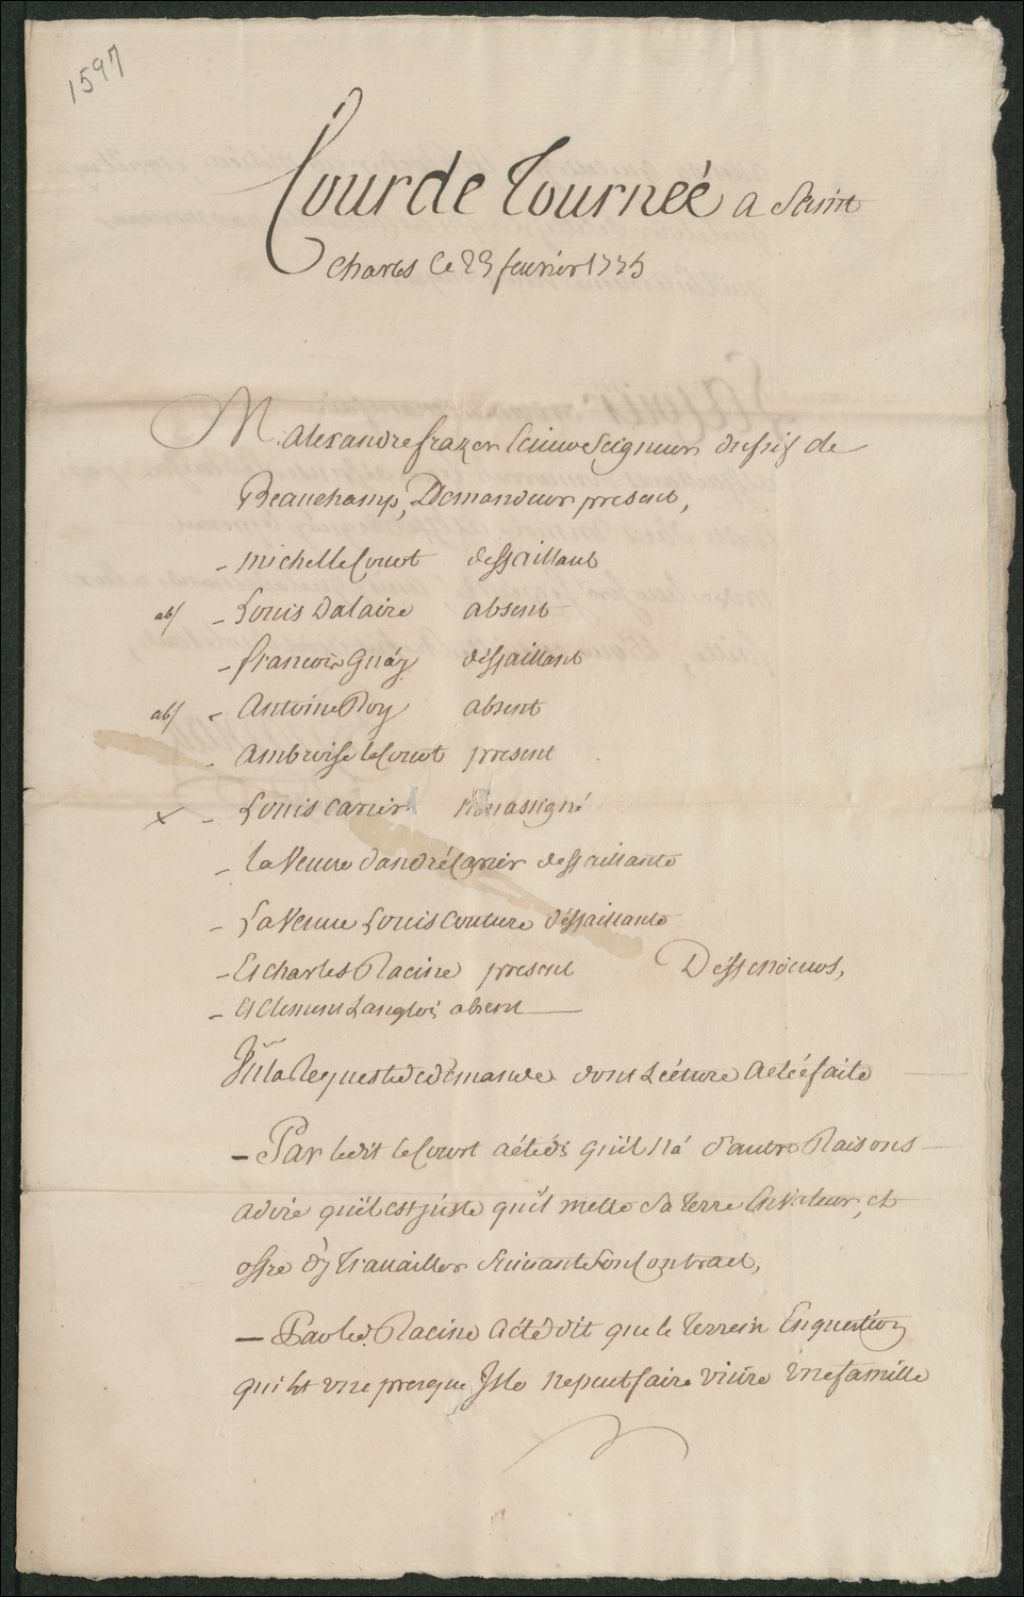 1597
Cour de Tournéé a Saint
Charles le 23 feurier 1775
M. Alexandre frazer Seigneur du fief de
Beauchamp, Demandeur present,
- michel le Court deffaillant
abs - Louis Dalaire absent
- francois Guáy déffaillant
abs - Antoine Roy absent
- Ambroise le Court present
x - Louis Carier Non assigné
- la Veuue d'andré Carier deffaillante
- La Veuue Louis Couture déffaillante
- Et charles Racine present Déffendeurs,
- Et Clement Langlois absent
Vû la Requeste de demande dont Lécture a eté faite
- Par ledit le Court a été dit qu'il n'a d'autre Raisons
a dire qu'il est juste qu'il mette Sa terre En Valeur, et
offre d'y trauailler Suiuant Son Contract,
- Par led. Racine a été dit que le terrein En question
qui Est vne presque Isle ne peut faire viüre vne famille